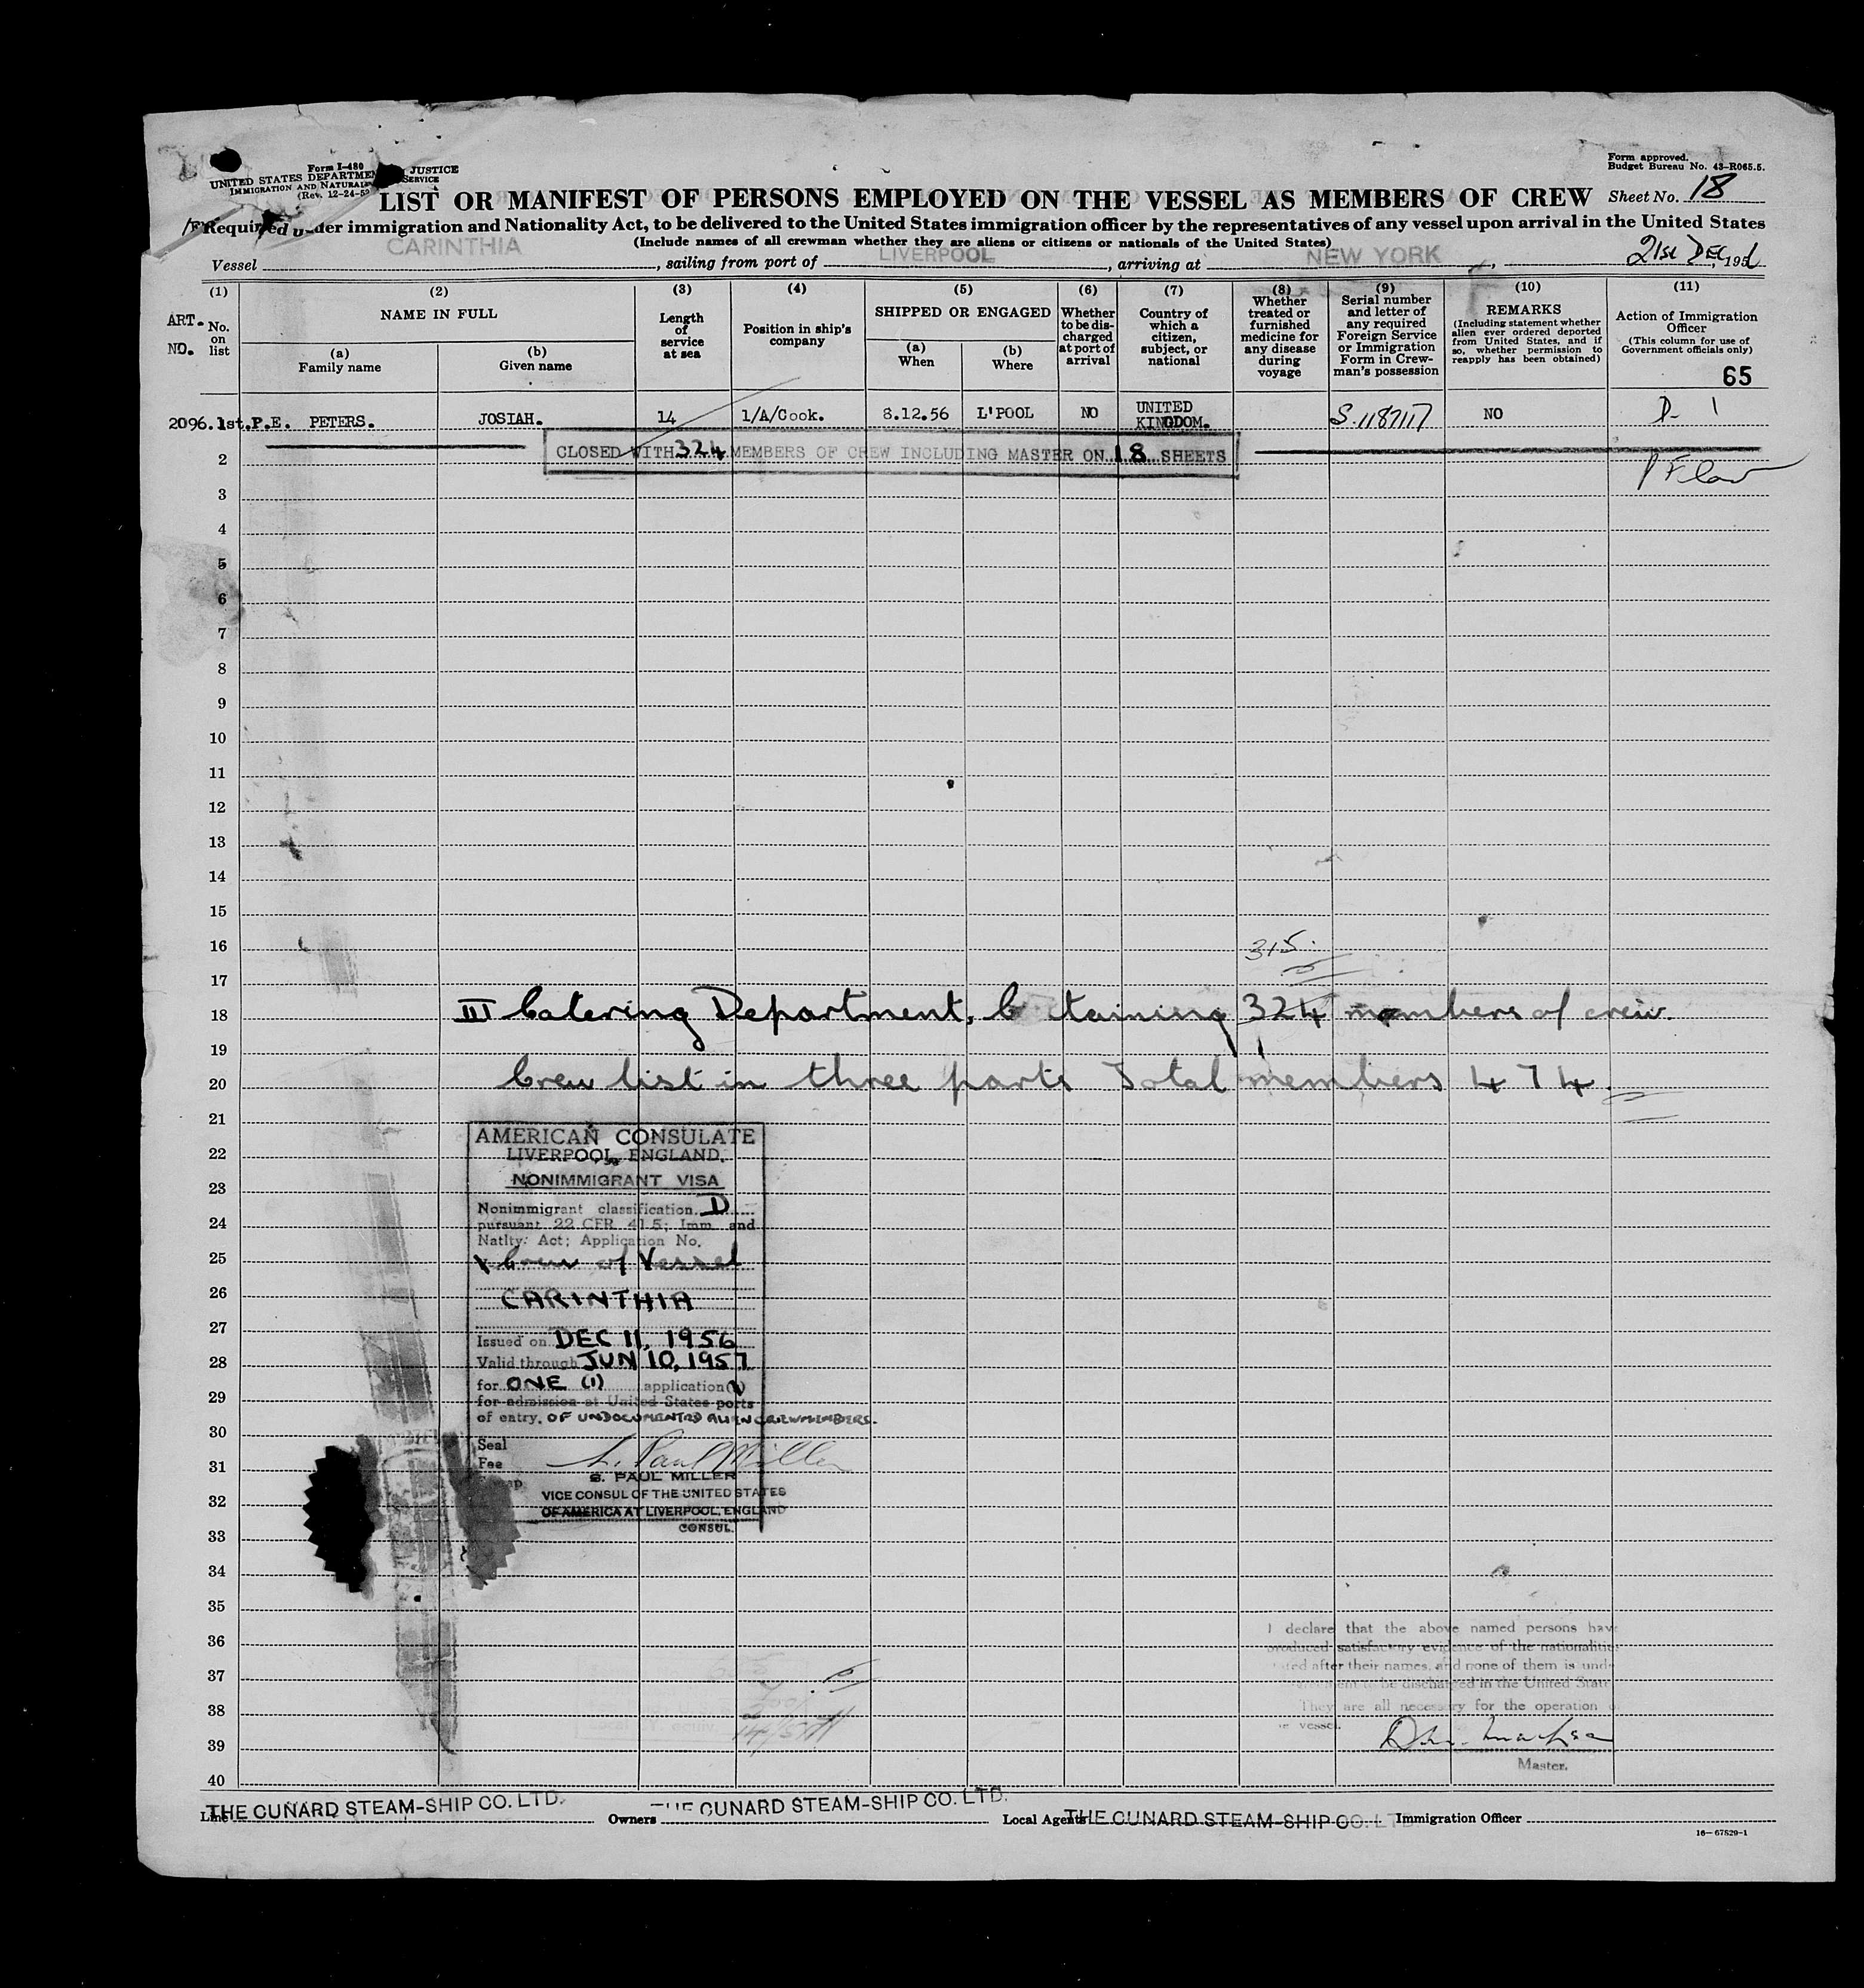 Form I-480
UNITED STATES DEPARTMEN JUSTICE
IMMIGRATION AND NATURAL SERVICE
(Rev. 12-24-52
Form approved.
Budget Bureau No. 43-R065.5.
LIST OR MANIFEST OF PERSONS EMPLOYED ON THE VESSEL AS MEMBERS OF CREW
Sheet No. 18
Required under immigration and Nationality Act, to be delivered to the United States immigration officer by the representatives of any vessel upon arrival in the United States
(Include names of all crewman whether they are aliens or citizens or nationals of the United States)
Vessel CARINTHIA, sailing from port of LIVERPOOL, arriving at NEW YORK, 21st DEC, 1956
(1) (2) (3) (4) (5) (6) (7) (8) (9) (10) (11)
ART. NO. No. on list
NAME IN FULL
(a) Family name
(b) Given name
Length of service at sea
Position in ship's company
SHIPPED OR ENGAGED
(a) When
(b) Where
Whether to be discharged at port of arrival
Country of which a citizen, subject, or national
Whether treated or furnished medicine for any disease during voyage
Serial number and letter of any required Foreign Service or Immigration Form in Crewman's possession
REMARKS
(Including statement whether alien ever ordered deported from United States, and if so, whether permission to reapply has been obtained)
Action of Immigration Officer
(This column for use of Government officials only)
65
2096. 1st. P.E. PETERS. JOSIAH. 14 1/A/Cook. 8.12.56 L'POOL NO UNITED KINGDOM. S.1187117 NO D- 1
CLOSED WITH 324 MEMBERS OF CREW INCLUDING MASTER ON 18 SHEETS
2
3
4
5
6
7
8
9
10
11
12
13
14
15
16
315.
17
18 III Catering Department, C taining 324 members of crew.
19
20 Crew list in three parts Total members 474.
21
AMERICAN CONSULATE
22 LIVERPOOL, ENGLAND.
23 NONIMMIGRANT VISA
Nonimmigrant classification D
24 pursuant 22 CFR 41.5; Imm. and
Natlty. Act; Application No.
25 Crew of Vessel
26 CARINTHIA
27 Issued on DEC 11, 1956
28 Valid through JUN 10, 1957
for ONE (1) application(s)
29 for admission at United States ports
of entry. OF UNDOCUMENTED ALIEN CREWMEMBERS.
30 Seal
31 Fee S. Paul Miller
S. PAUL MILLER
32 VICE CONSUL OF THE UNITED STATES
OF AMERICA AT LIVERPOOL, ENGLAND
33 CONSUL.
34
35
I declare that the above named persons have
36 produced satisfactory evidence of the nationalities
37 after their names, and none of them is und
to be discharged in the United State
38 They are all necessary for the operation o
vessel.
39
Master.
40
Line THE CUNARD STEAM-SHIP CO. LTD. Owners THE CUNARD STEAM-SHIP CO. LTD. Local Agents THE CUNARD STEAM-SHIP CO. LTD Immigration Officer
16—67529-1